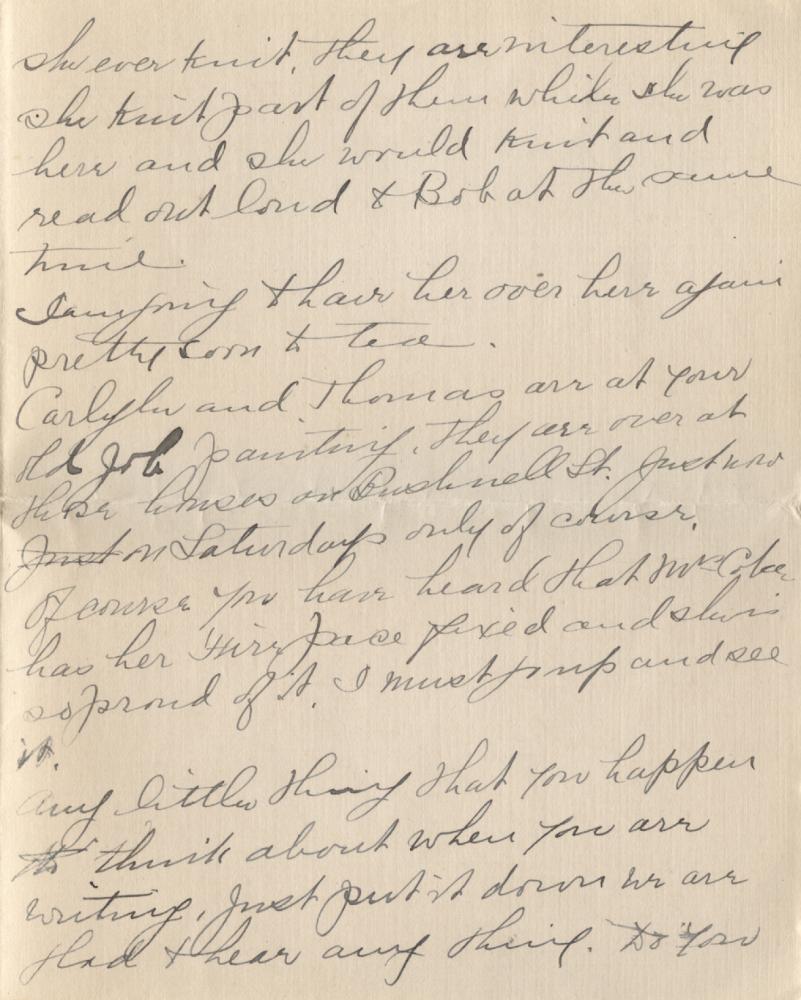 she ever knit, they are interesting
she knit part of them while she was
here and she would knit and
read out loud to Bob at the same
time.
I am going to have her over here again
pretty soon to tea.
Carlyle and Thomas are at your
old job painting. They are over at
those houses on Bushnell St. Just now
Just on Saturdays only of course.
Of course you have heard that Mrs Coke
has her Fire pace fixed and she is
so proud of it. I must go up and see
it.
Any little thing that you happen
to think about when you are
writing, Just put it down we are
glad to hear any thing. Do you